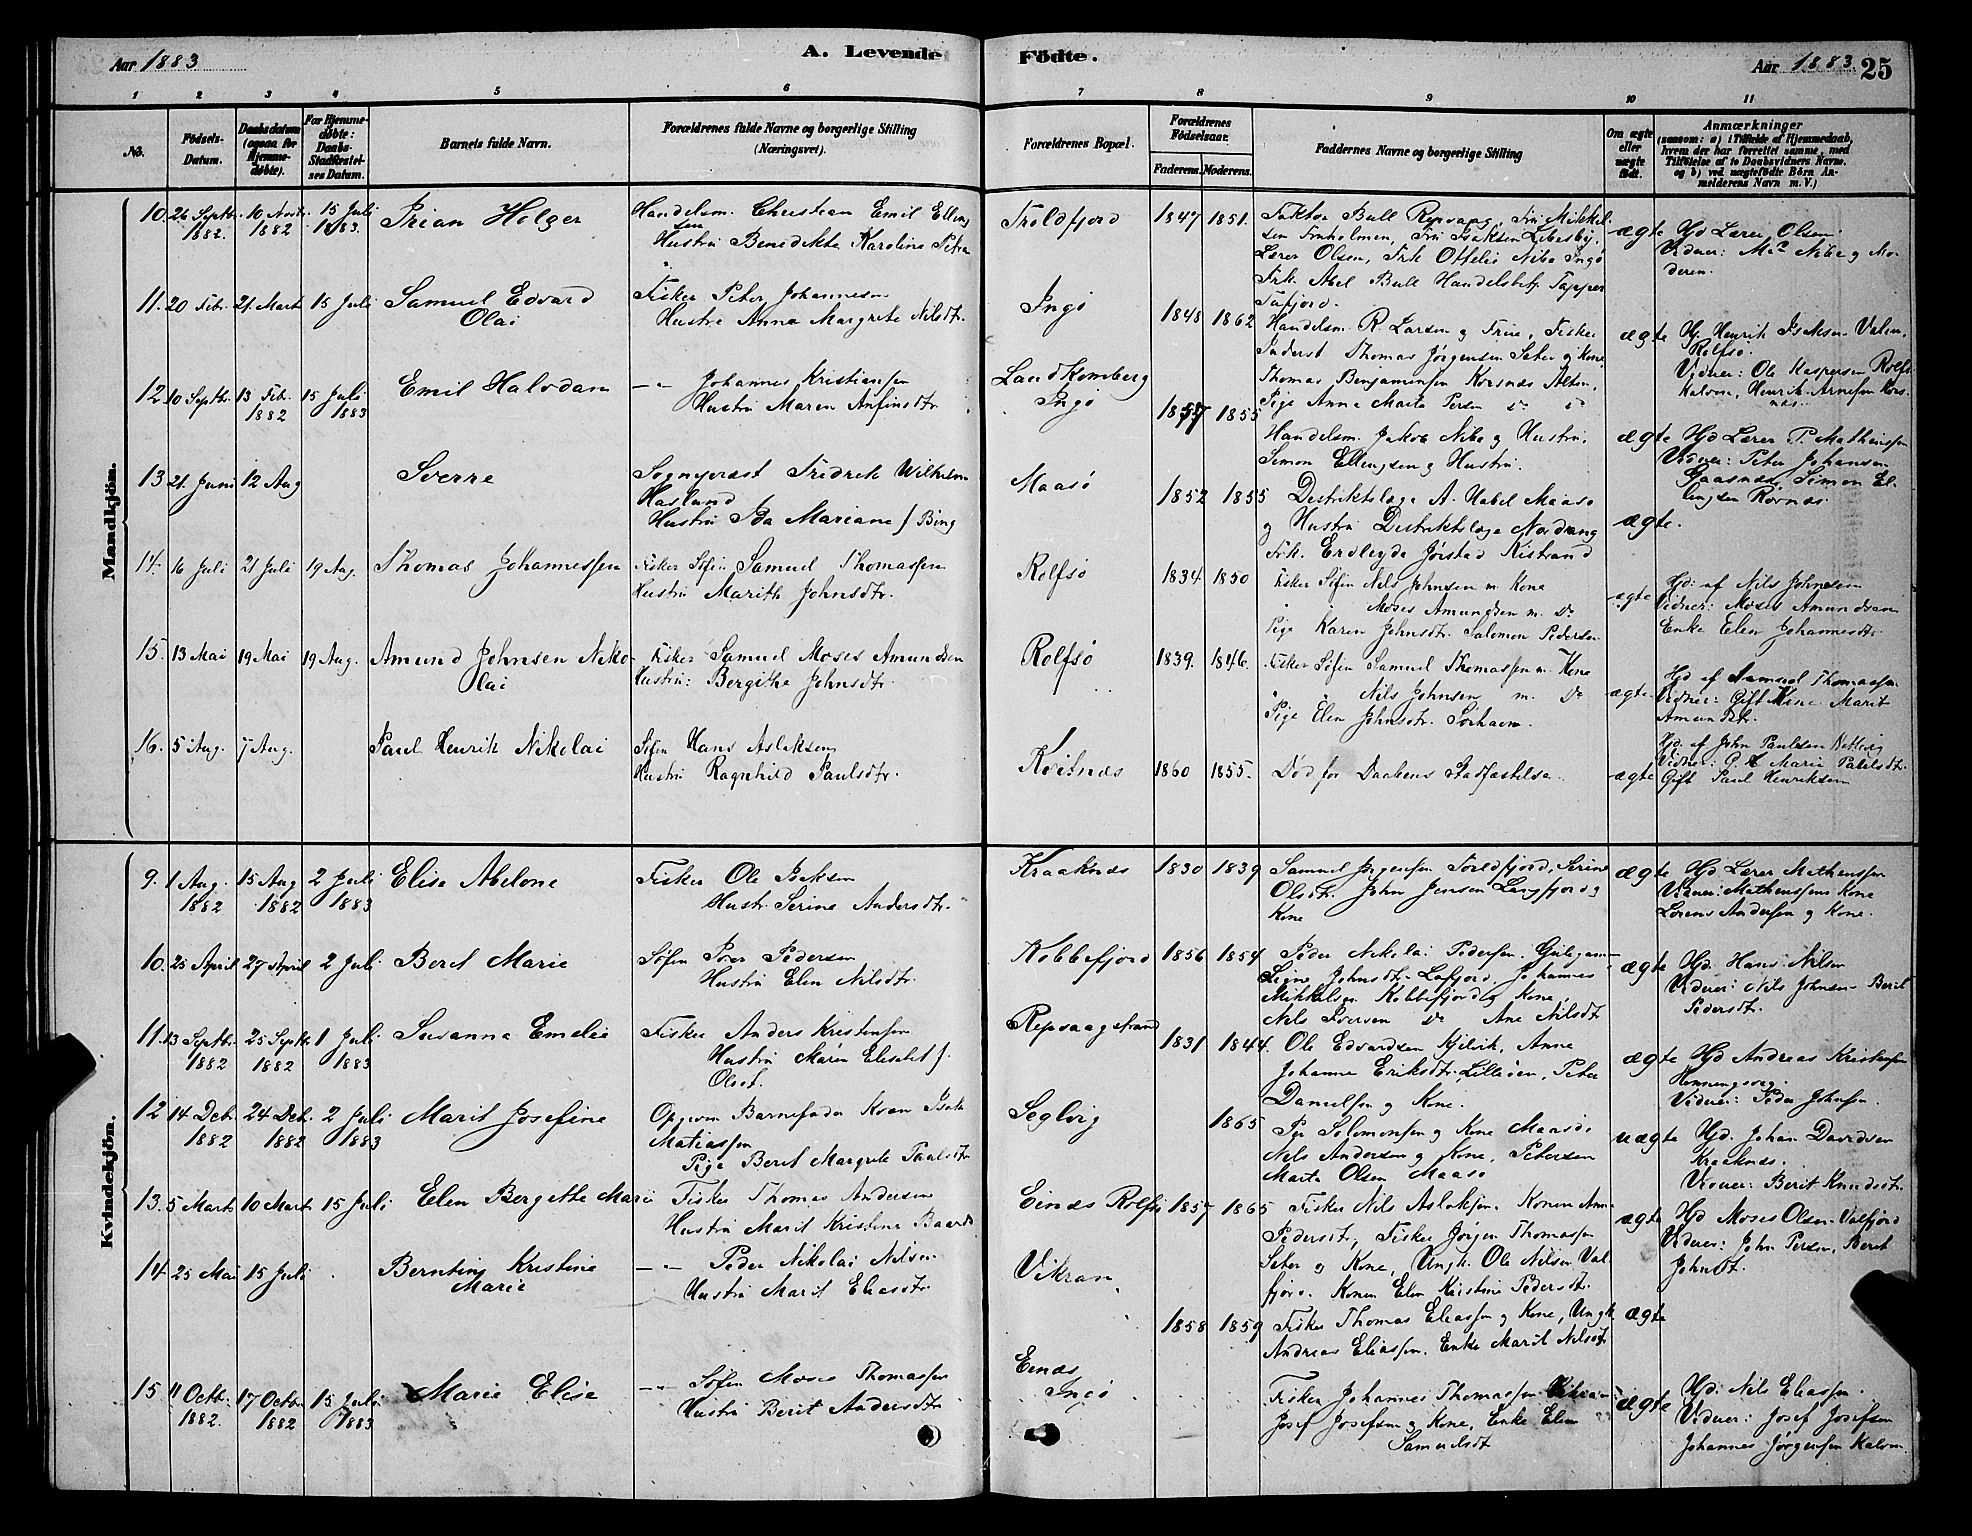 Aar 1883
A. Levende Födte.
Aar 1883. 25
1 2 3 4 5 6 7 8 9 10 11
No.
Födsels-Datum.
Daabsdatum (ogsaa for Hjemmedöbte).
For Hjemmedöbte: Daabs-Stadfæstelses Datum.
Barnets fulde Navn.
Forældrenes fulde Navne og borgerlige Stilling (Næringsvei).
Forældrenes Bopæl.
Forældrenes Födselsaar. Faderens. Moderens.
Faddernes Navne og borgerlige Stilling
Om ægte eller uægte födt.
Anmærkninger (saasom: a) i Tilfælde af Hjemmedaab, hvem der har forrettet samme, med Tilföielse af to Daabsvidners Navne. og b) ved uægtefödte Börn Anmelderens Navn m. V.)
Mandkjön.
10. 26 Septbr. 1882. 10 Novbr. 1882 15 Juli 1883. Holger
Handelsm. Christian Emil Ellingsen
Hustru Benedikte Karoline Petra
Troldfjord 1847 1851.
Faktor Bull Repvaag, Fru Mikkelsen
Lærer Olsen, Frk Ottelie Nibe Ingö
Frk. Abel Bull
ægte Hjd Lærer Olsen.
11. 20 Febr. 21. Marts 15 Juli Samuel Edvard
Olai
Fisker Peter Johannesen
Hustru Anna Margrete Nilsdtr.
Ingö 1848 1862
Handelsm. R. Larsen og Frue, Fisker
Thomas Jörgensen Sæter og Kone
Thomas Benjaminsen Korsnæs Alten,
Pige Anne Marta Persen
ægte Hj. Henrik Isaksen
Rolfsö.
Vidner: Ole Kaspersen
Henrik Arnesen
12. 10 Septbr. 13 Febr. 1882 15 Juli 1883 Emil Halvdan
Johannes Kristiansen
Hustru Maren Anfinsdtr.
Ingö 1857 1855
Handelsm. Jakob Nibe og Hustru,
Simon Ellingsen og Hustru.
ægte Hjd Lærer P. Mathisen
Vidner: Peter Johansen
Simon Ellingsen
13 21 Juni 12 Aug Sverre
Sognepræst Fredrik Wilhelm
Haslund
Hustru Ida Mariane f. Bing
Maasö 1852 1855
Distriktslæge A. Habel Maasö
og Hustru Distriktslæge Nordvang
Frk. Jörstad Kistrand
ægte.
14. 16 Juli 21 Juli 19 Aug. Thomas Johannessen
Fisker Söfin Samuel Thomassen
Hustru Marith Johnsdtr.
Rolfsö 1834 1850
Fisker Söfin Nils Johnsen m. Kone
Moses Amundsen m. Do
Pige Karen Johnsdtr. Salomon Pedersen
ægte Hjd: af Nils Johnsen
Vidner: Moses Amundsen
Enke Elen Johannesdtr.
15. 13 Mai 19 Mai 19 Aug. Amund Johnsen Niko-
lai
Fisker Samuel Moses Amundsen
Hustru: Bergithe Johnsdtr.
Rolfsö 1839. 1846.
Fisker Söfin Samuel Thomassen m. Kone
Nils Johnsen m. Do
Pige Elen Johnsdtr. Sörhavn.
ægte. Hjd af Samuel Thomassen
Vidner: Gift Kone Marit
Amundsdtr.
16. 5 Aug. 7 Aug. Paul Henrik Nikolai
Söfin Hans Aslaksen
Hustru Ragnhild Paulsdtr.
Kvitnæs 1860 1855.
Död for Daabens Stadfæstelse.
ægte Hjd. af John Paulsen
Vidner: Marie Paulsdtr.
Gift Paul Henriksen
Kvindekjön.
9. 1 Aug. 1882 15 Aug 1882 2 Juli 1883 Elise Abelone
Fisker Ole Isaksen
Hustr. Serine Andersdtr.
Kraaknæs 1830 1839
Samuel Jörgensen Troldfjord, Serine
Olsdtr. John Jensen Langfjord og
Kone
ægte Hjd Lærer Mathisen
Vidner: Mathisens Kone
Lorens Andersen og Kone.
10. 25 April 27 April 2 Juli Berit Marie
Söfin Iver Pedersen
Hustru Elen Nilsdtr.
Kobbefjord 1856 1854
Peder Nikolai Pedersen
Signe Johnsdtr. Johannes
Mikkelsen Kobbefjord og Kone
Nils Iversen Do Ane Nilsdtr
ægte Hjd. Hans Nilsen
Vidner: Nils Johnsen Berit
Pedersdtr.
11. 13 Septbr. 1882 25 Septbr. 1882 1 Juli 1883 Susanna Emelie
Fisker Anders Kristensen
Hustru Maren Elisabet f.
Olsdt.
Repvaagstrand 1831 1844.
Ole Edvardsen Kjelvik, Anne
Johanne Eriksdtr. Peter
Danielsen og Kone.
ægte Hjd Andreas Kristensen
Honningsvog.
Vidner: Peder Johnsen.
12 14 Dcbr. 1882 24 Dcbr. 1882 2 Juli 1883 Marit Josefine
Opgiven Barnefader Kvæn Isak
Matiassen
Pige Berit Margrete Paulsdtr
Seglvig 1865
Per Solomonsen og Kone Maasö.
Nils Andersen og Kone, Petersen
Marta Olsen Maasö
uægte Hjd. Johan Davidsen
Kraaknæs.
Vidner: Berit Knudsdtr.
13. 5 Marts 10 Marts 15 Juli Elen Bergitte Marie
Fisker Thomas Andersen
Hustru Marit Kristine
Einæs Rolfsö 1857 1865
Fisker Nils Aslaksen. Konen Ane
Pedersdtr, Fisker Jörgen Thomassen
Sæter og Kone, Ungk. Ole Nilsen Val-
fjord. Konen Elen Kristine Pedersdtr.
ægte Hjd Moses Olsen Valfjord
Vidner: John Persen, Berit
Johnsdt.
14 25 Mai 15 Juli Berntine Kristine
Marie
Peder Nikolai Nilsen
Hustru Marit Eliasdtr.
Vikran 1858 1859
Fisker Thomas Eliassen og Kone, Ungk
Andreas Eliassen. Enke Marit Nilsdtr
ægte
15 11 Octbr. 1882. 17 Octbr. 1882 15 Juli 1883 Marie Elise
Söfin Moses Thomassen
Hustru Berit Andersdtr.
Einæs
Ingö
Fisker Johannes Thomassen
Josef Josefsen og Kone, Enke Elen
Samuelsdt
ægte Hjd: Nils Eliassen.
Vidner: Josef Josefsen
Johannes Jörgensen